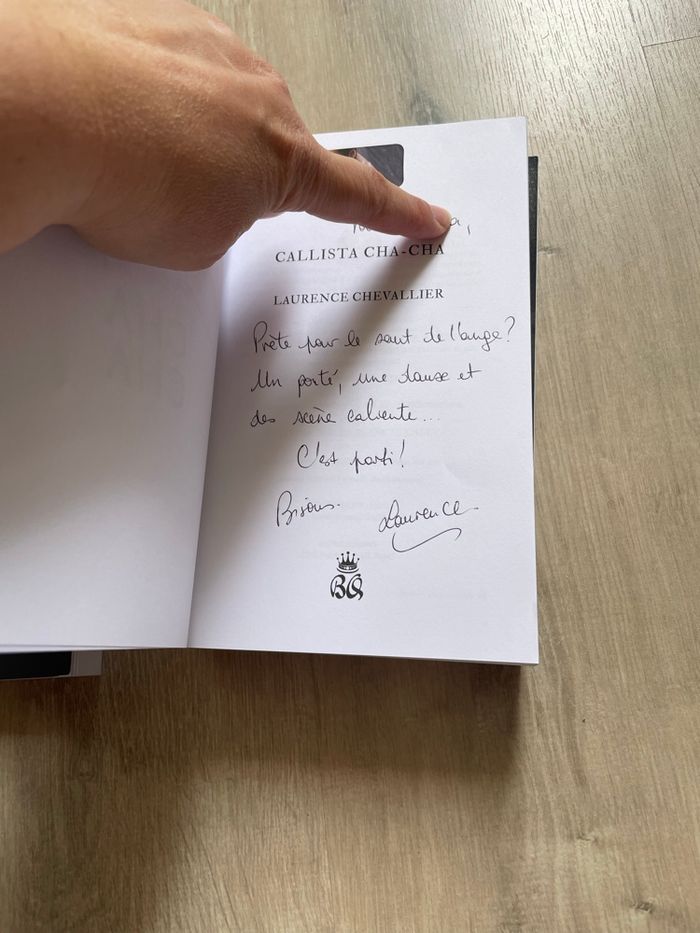 CALLISTA CHA-CHA
LAURENCE CHEVALLIER
Prête pour le saut de l'ange?
Un porté, une danse et
des scène caliente...
C'est parti!
Bisous.
Laurence
BQ